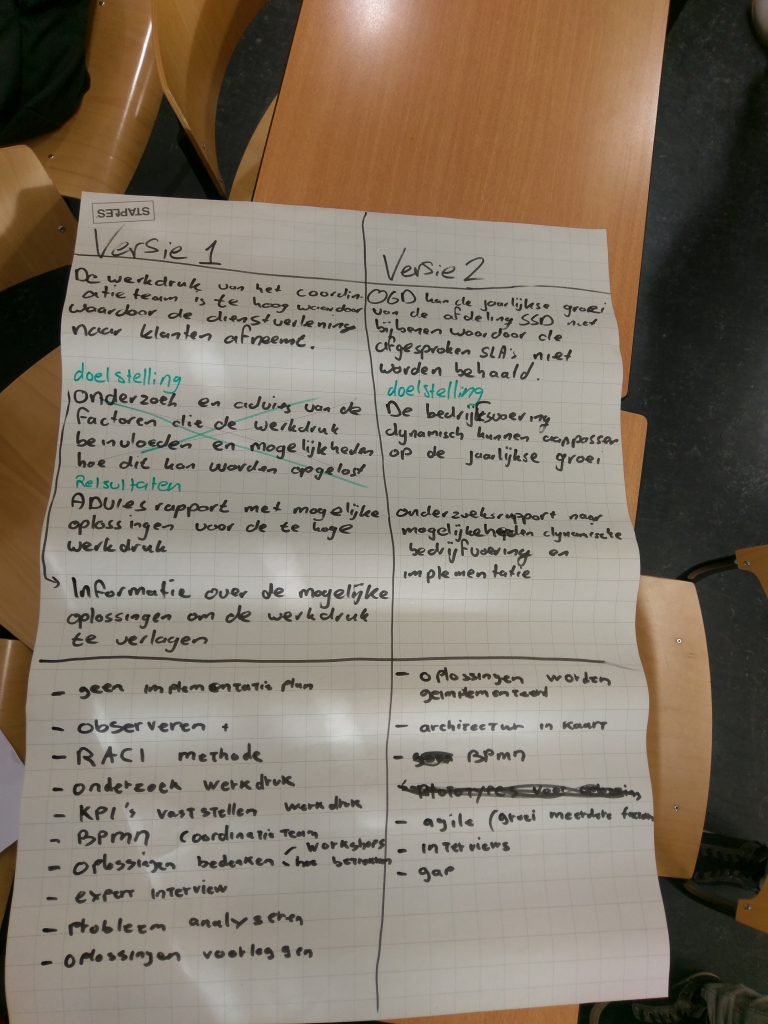 STAPLES
Versie 1
De werkdruk van het coordin-
atieteam is te hoog waardoor
waardoor de dienstverlening
naar klanten afneemt.
doelstelling
Onderzoek en advies van de
factoren die de werkdruk
beinvloeden en mogelijkheden
hoe dit kan worden opgelost
Relsultaten
ADVies rapport met mogelijke
oplossingen voor de te hoge
werkdruk
Informatie over de mogelijke
oplossingen om de werkdruk
te verlagen
- geen implementatie plan
- observeren +
- RACI methode
- onderzoek werkdruk
- KPI's vaststellen werkdruk
- BPMN coordinatie team
- oplossingen bedenken - workshops
- hoe
- expert interview
- probleem analyseren
- oplossingen voorleggen
Versie 2
OGD kan de jaarlijkse groei
van de afdeling SSD niet
bijbenen waardoor de
afgesproken SLA's niet
worden behaald.
doelstelling
De bedrijfsvoering
dynamisch kunnen aanpassen
op de jaarlijkse groei
onderzoeksrapport naar
mogelijkeheden dynamische
bedrijfvoering en
implementatie
- oplossingen worden
geimplementeerd
- architectuur in kaart
- BPMN
- agile (groei meerdere factoren
- interviews
- gap